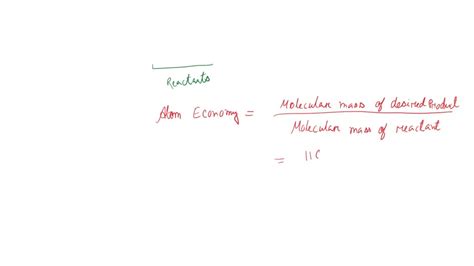 Reactuts
Atom Economy = Molecular mass of desired Product
Molecular mass of reactant
= 110